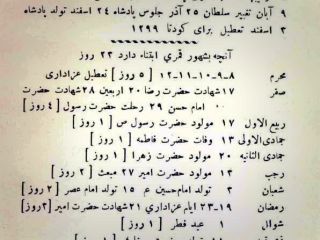 ۹ آبان تغییر سلطان ۲۵ آذر جلوس پادشاه ۲۴ اسفند تولد پادشاه
۳ اسفند تعطیل برای کودتا ۱۲۹۹
آنچه بشهور قمری ابتناء دارد ۲۳ روز
محرم ۸-۹-۱۰-۱۱-۱۲ [ ۵ روز ] تعطیل عزاداری
صفر ۱۷ شهادت حضرت رضا ۲۰ اربعین ۲۸ شهادت حضرت
امام حسن ۲۹ رحلت حضرت رسول [ ۴ روز ]
ربیع الاول ۱۷ مولود حضرت رسول ص [ ۱ روز ]
جمادی الاولی ۱۳ وفات حضرت فاطمه [ ۱ روز ]
جمادی الثانیه ۲۰ مولود حضرت زهرا [ ۱ روز ]
رجب ۱۳ مولود حضرت امیر ۲۷ مبعث [ ۲ روز ]
شعبان ۳ تولد امام حسین ع ۱۵ تولد امام عصر [ ۲ روز ]
رمضان ۱۹-۲۳ ایام عزاداری ۲۱ شهادت حضرت امیر [ ۳ روز ]
شوال ۱ عید فطر [ ۱ روز ]